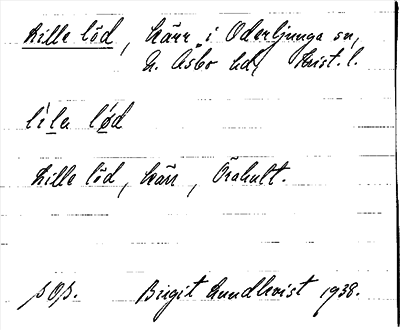 Lille löd, kärr i Oderljunga sn,
N. Åsbo hd, Krist. l.
lìlə lø̀d
Lille löd, kärr, Örahult.
Birgit Lundkvist 1938.